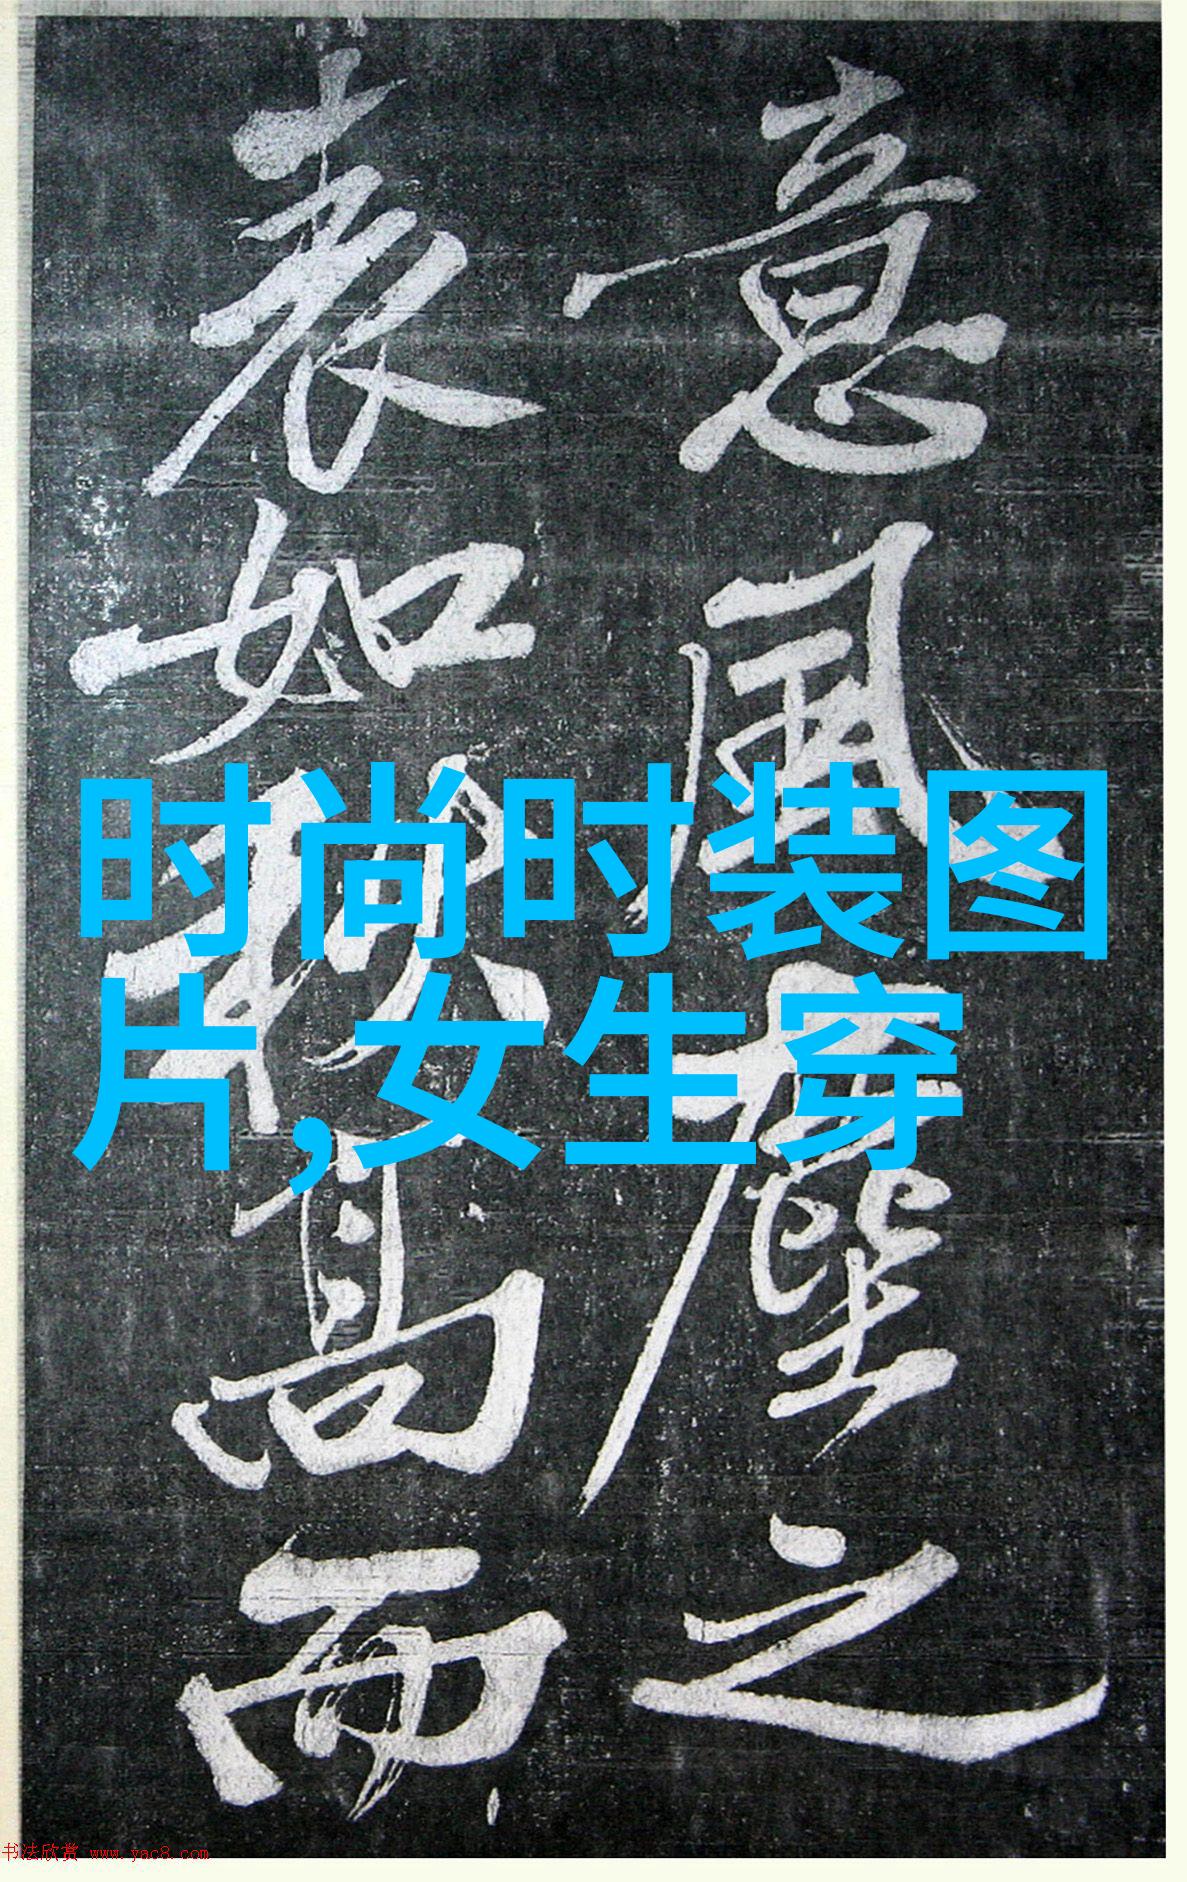 意風塵之
表如秋高而
时尚时装图
片,女生穿
书法欣赏 www.yac8.com